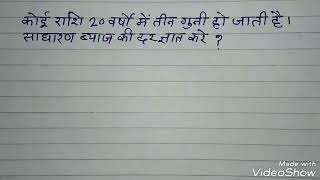 कोई राशि 20 वर्षो में तीन गुनी हो जाती है।
साधारण ब्याज की दर ज्ञात करे ?
Made with
VideoShow